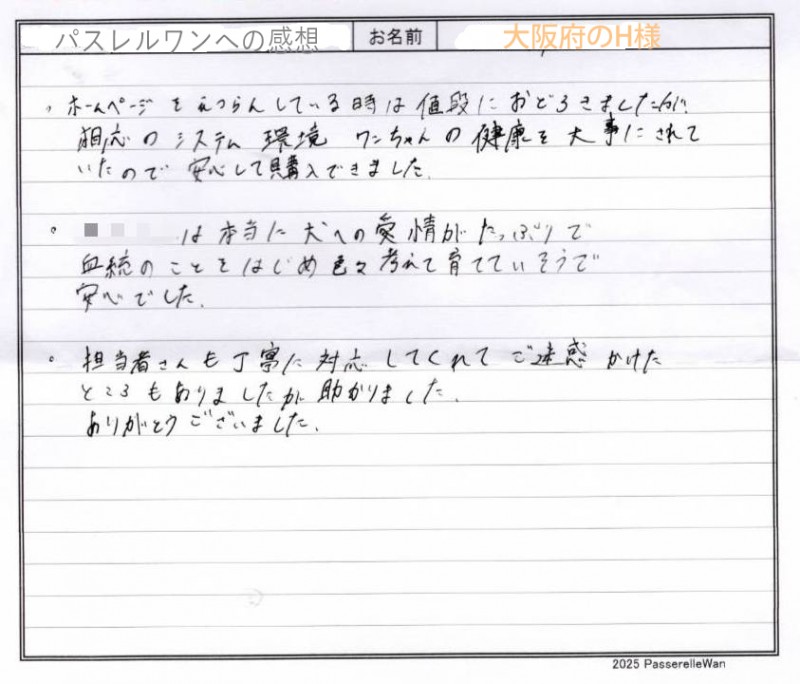 パスレルワンへの感想 お名前 大阪府のH様
、ホームページをえつらんしている時は値段におどろきましたが
相応のシステム 環境 ワンちゃんの健康を大事にされて
いたので安心して購入できました。
。は本当に犬への愛情がたっぷりで
血統のことをはじめ色々考えて育てていそうで
安心でした。
。担当者さんも丁寧に対応してくれてご迷惑かけた
ところもありましたが助かりました。
ありがとうございました。
2025 PasserelleWan